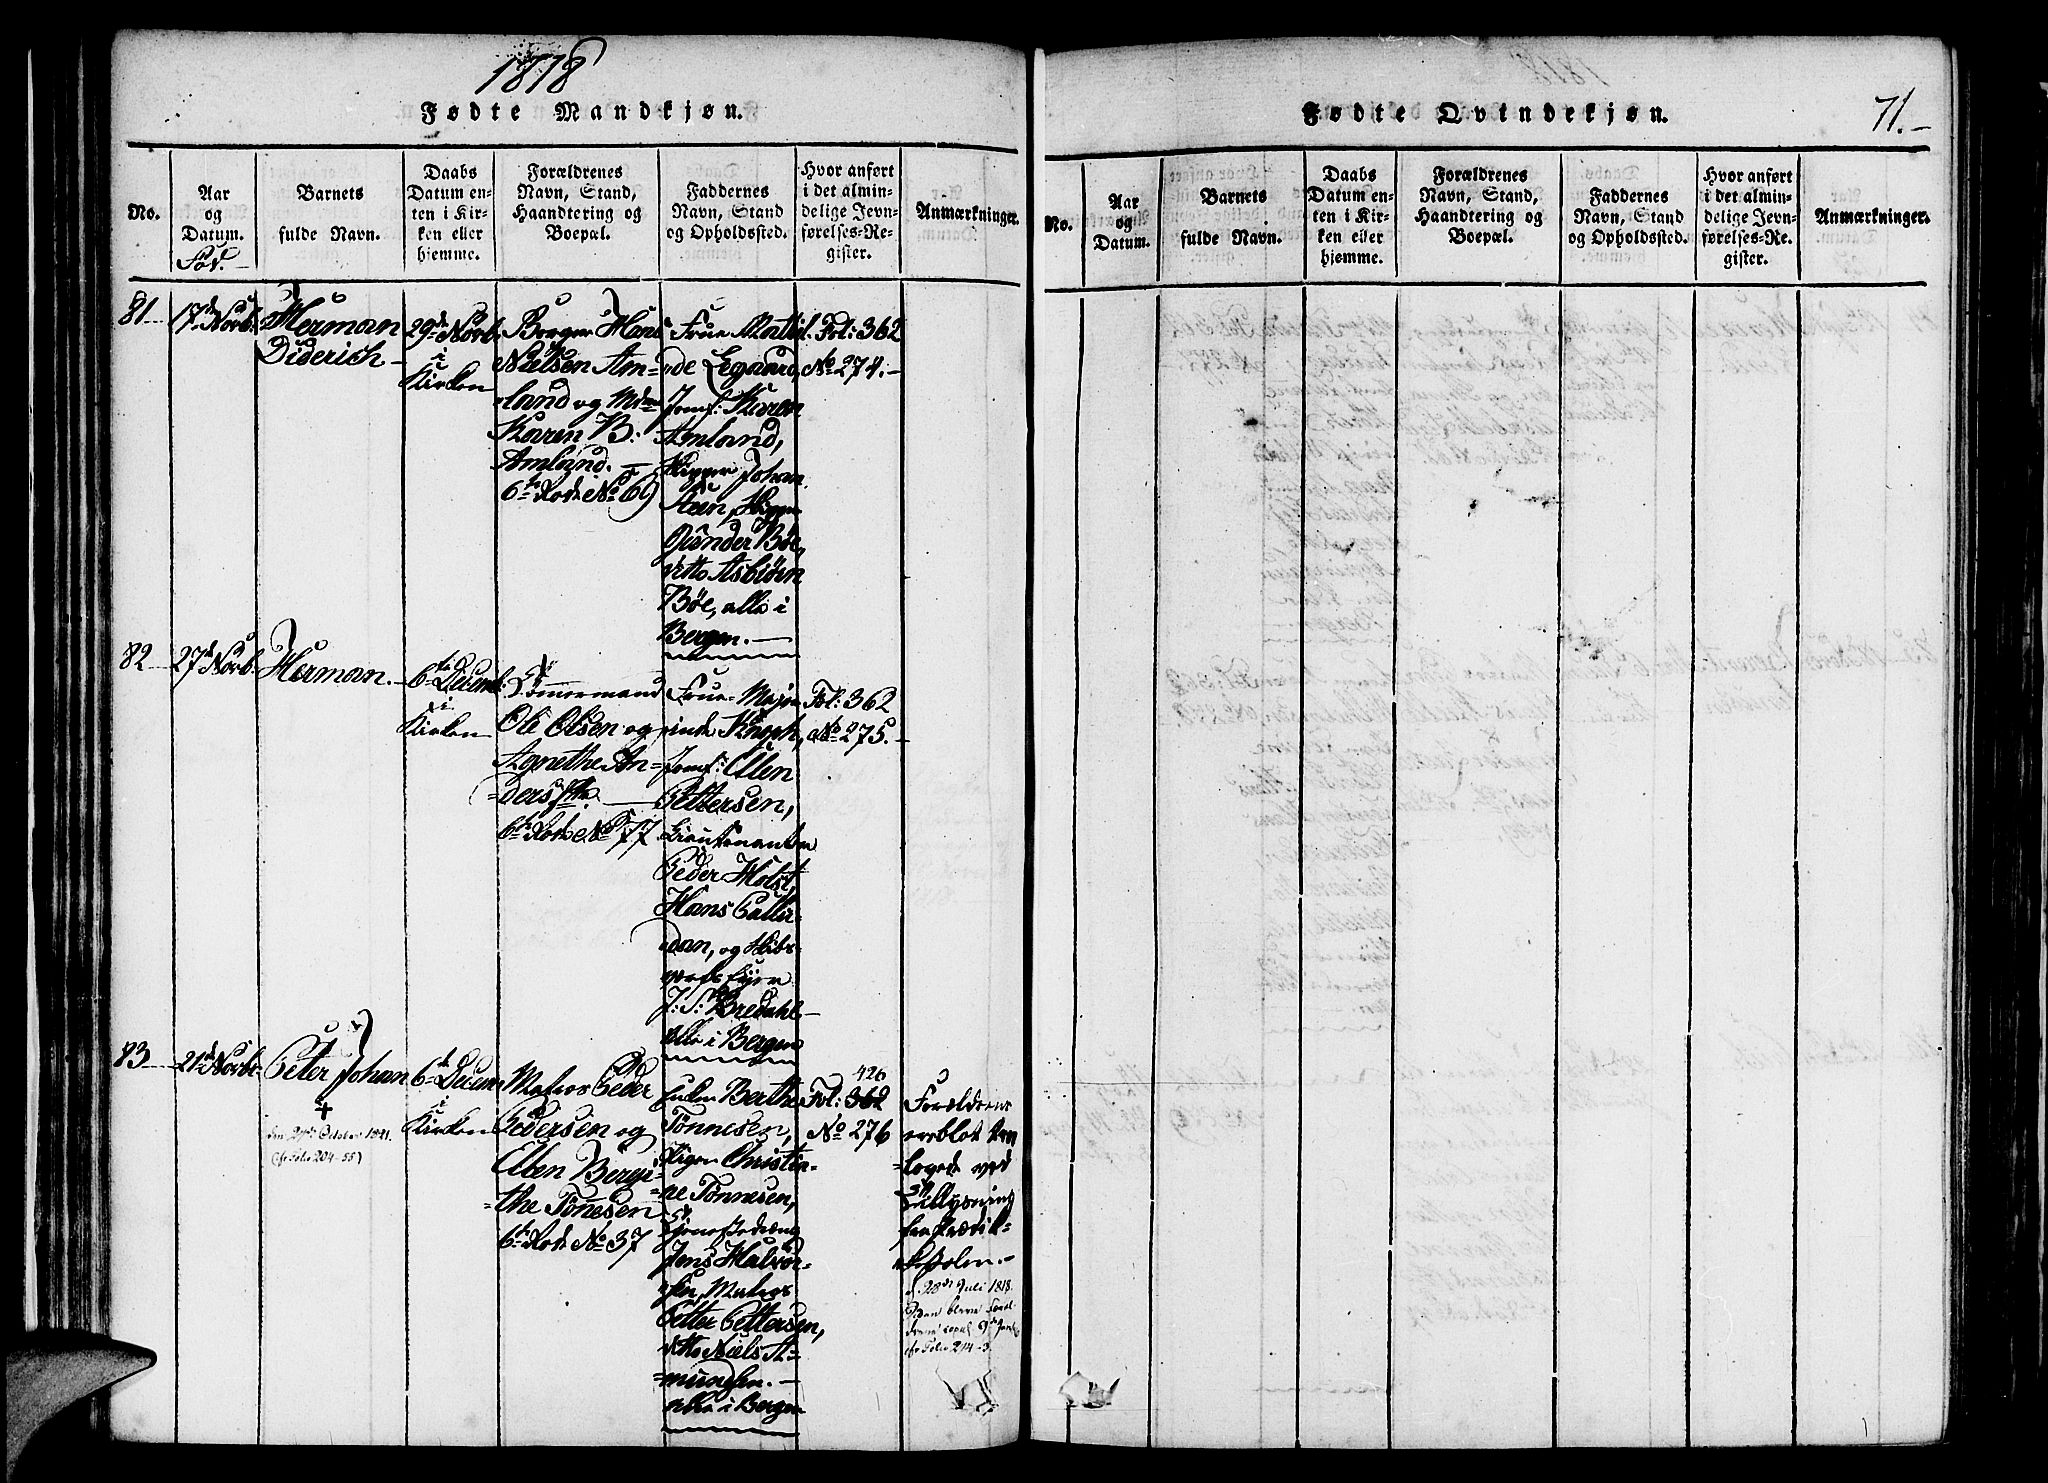 1818
Fødte Mandkjøn.
No.
Aar
og
Datum.
Fød.
Barnets
fulde Navn.
Daabs
Datum en-
ten i Kir-
ken eller
hjemme.
Forældrenes
Navn, Stand,
Haandtering og
Boepæl.
Faddernes
Navn, Stand
og Opholdssted.
Hvor anført
i det almin-
delige Jevn-
førelses-Re-
gister.
Anmærkninger.
81
17de Novb.
Herman
Diderich
29de Novb.
i
Kirken
Borger Hans
Nielsen Am-
land og Mdme
Karen B:
Amland.
6te Rode No 69
Frue Mathil-
de Legaard,
Jomf: Karen
Amland,
Skipper Johan
Steen, Skipper
Gunder Böe,
ditto Asbiörn
Böe, alle i
Bergen.
Fol: 362
No 274.
82
27d Novb.
Herman.
6te Decemb.
i
Kirken
Tømmermand
Ole Olsen og
Agnethe An-
ders
6te Rode No 77
Frue Majo-
rinde
Jomf: Ellen
Pettersen,
Lieutenanten
Peder Holst,
Hans
dan, og Skibs-
J: S: Bredahl
alle i Bergen
Fol: 362
No 275.
83
21de Novbr
Peter Johan
+
den 29de October 1821.
(cfr Folio 204-55)
6te Decem
i
Kirken
Matros Peder
Pedersen og
Ellen Bergi-
the Tönesen
6te Rode No 37
Enken Berthe
Tönnesen,
Pigen Christia-
ne Tönnesen,
Jens Halvor-
sen, Matros
Petter Pettersen,
ditto Niels A-
mundsen.
alle i Bergen
426
Fol: 362
No 276
Forældrene
ere blot tro-
lovede ved
Tillysning
fra Prædik-
stolen.
d. 28de Juli 1818.
Dan bleve Foræl-
drene copul.
cfr Folio 214-3.
Fødte Qvindekjøn.
71.-
No.
Aar
og
Datum.
Barnets
fulde Navn.
Daabs
Datum en-
ten i Kir-
ken eller
hjemme.
Forældrenes
Navn, Stand,
Haandtering og
Boepæl.
Faddernes
Navn, Stand
og Opholdssted.
Hvor anført
i det almin-
delige Jevn-
førelses-Re-
gister.
Anmærkninger.